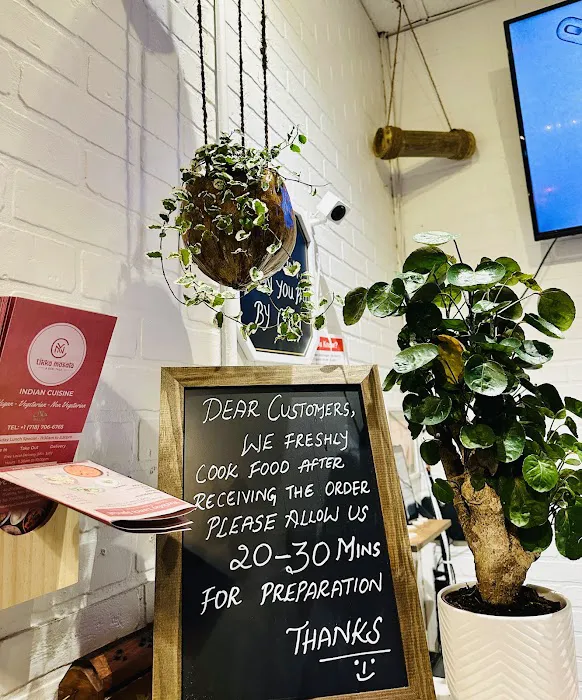 YOU PA
BY
Tikka masala
INDIAN CUISINE
Vegan - Vegetarian - Non Vegetarian
TEL: +1 (718) 706-6765
Take Out
Delivery
DEAR CUSTOMERS,
WE FRESHLY
COOK FOOD AFTER
RECEIVING THE ORDER
PLEASE ALLOW US
20-30 MINS
FOR PREPARATION
THANKS